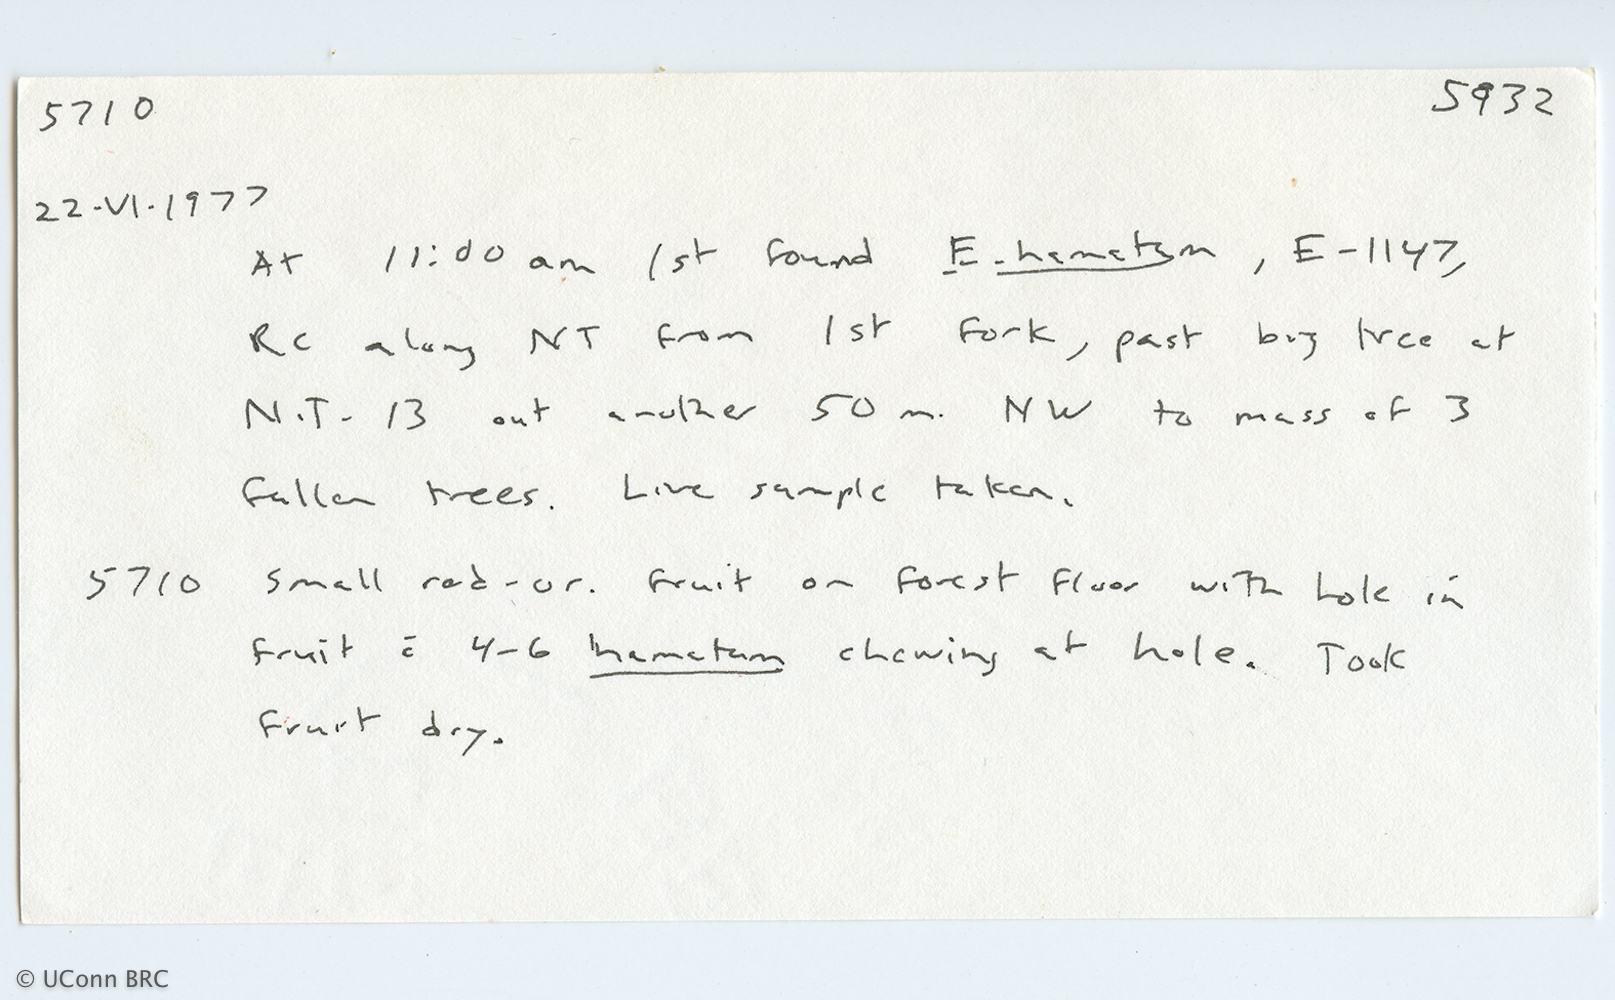 5710 5932
22-VI-1977
At 11:00 am 1st found E. hamatum, E-1147,
RC along NT from 1st fork, past big tree at
N.T-13 out another 50 m. NW to mass of 3
fallen trees. Live sample taken.
5710 Small red-or. fruit on forest floor with hole in
fruit c̄ 4-6 hamatum chewing at hole. Took
fruit dry.
© UConn BRC